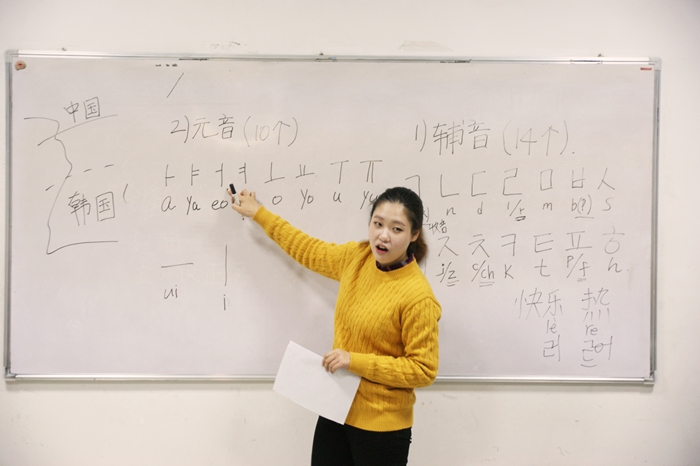 中国
韩国
2) 元音 (10个)
ㅏ ㅑ ㅓ ㅕ ㅗ ㅛ ㅜ ㅠ
a ya eo o yo u yu
ㅡ ㅣ
ui i
1) 辅音 (14个).
ㄱ ㄴ ㄷ ㄹ ㅁ ㅂ ㅅ
n d l/r m b(p) s
ㅈ ㅊ ㅋ ㅌ ㅍ ㅎ
j/z c/ch k t p/f h.
快乐 热
lè re
러